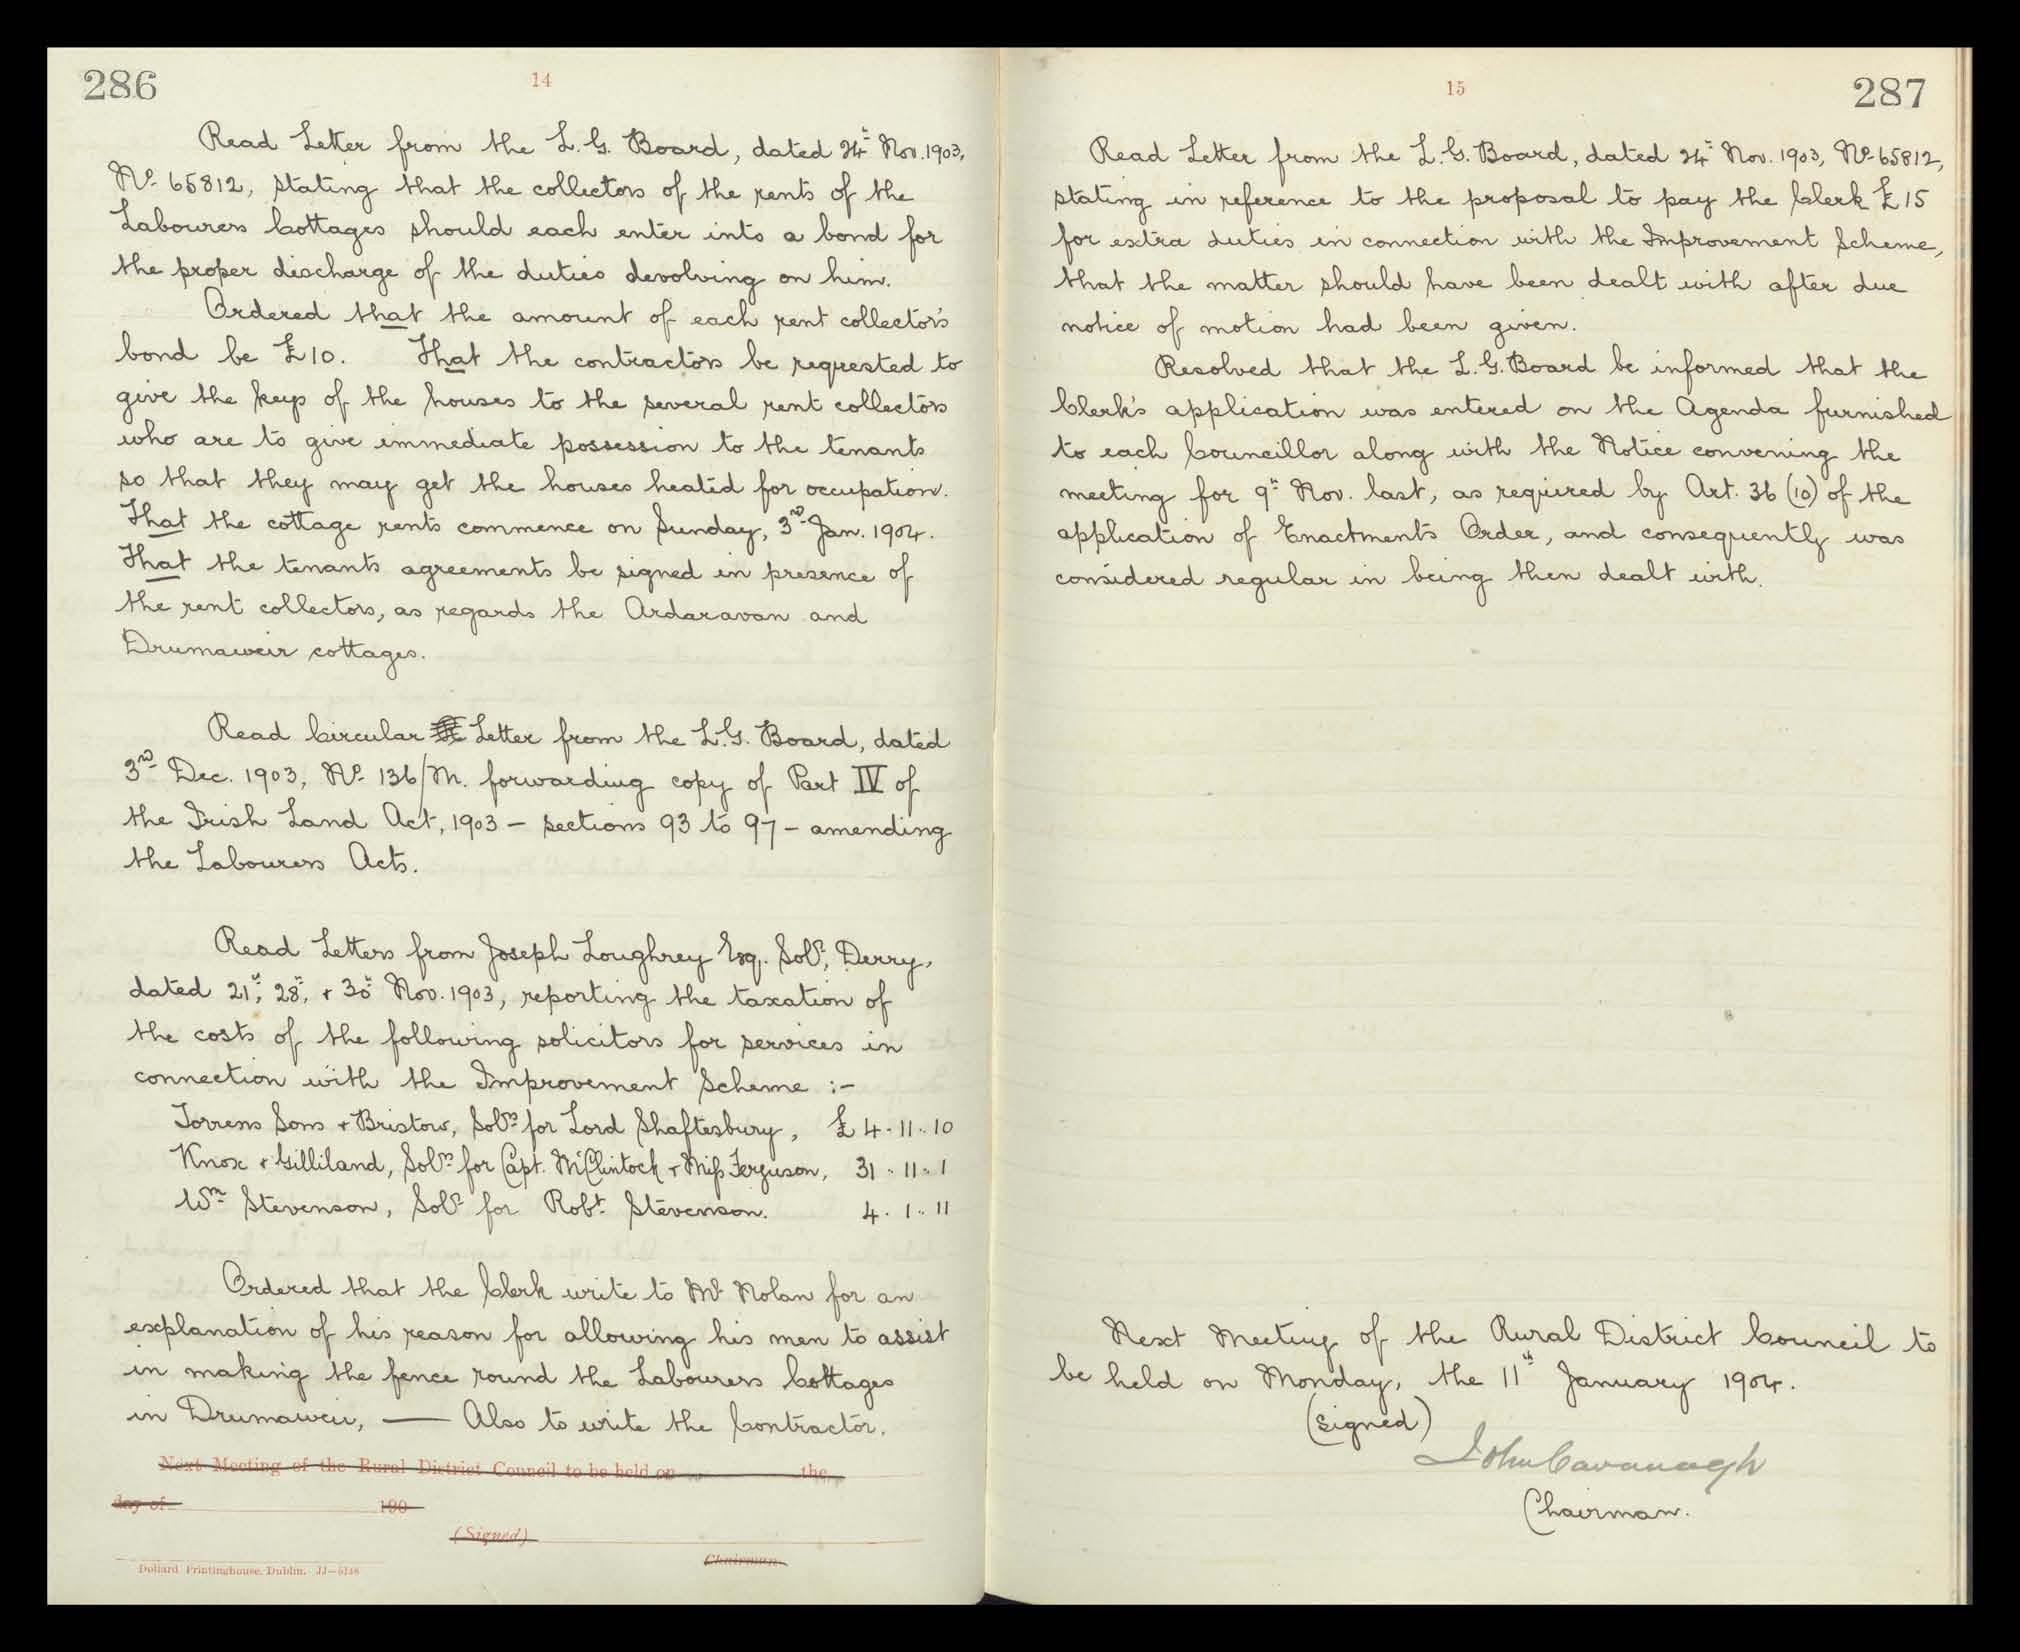 286
14
Read Letter from the L. G. Board, dated 24th Nov. 1903,
No. 65812, stating that the collectors of the rents of the
Labourers Cottages should each enter into a bond for
the proper discharge of the duties devolving on him.
Ordered that the amount of each rent collector's
bond be £10. That the contractors be requested to
give the keys of the houses to the several rent collectors
who are to give immediate possession to the tenants
so that they may get the houses heated for occupation.
That the cottage rents commence on Sunday, 3rd Jan. 1904.
That the tenants agreements be signed in presence of
the rent collectors, as regards the Ardaravan and
Drumaweir cottages.
Read Circular Letter from the L. G. Board, dated
3rd Dec. 1903, No. 136/M. forwarding copy of Part IV of
the Irish Land Act, 1903 – sections 93 to 97 – amending
the Labourers Acts.
Read Letters from Joseph Loughrey Esq. Solr., Derry,
dated 21st, 28th, + 30th Nov. 1903, reporting the taxation of
the costs of the following solicitors for services in
connection with the Improvement Scheme :-
Torrens Sons + Bristow, Solrs. for Lord Shaftesbury, £ 4 . 11 .. 10
Knox + Gilliland, Solrs. for Capt. McClintock + Miss Ferguson, 31 .. 11 .. 1
Wm. Stevenson, Solr. for Robt. Stevenson. 4 . 1 .. 11
Ordered that the Clerk write to Mr. Nolan for an
explanation of his reason for allowing his men to assist
in making the fence round the Labourers Cottages
in Drumaweir, — Also to write the Contractor.
Next Meeting of the Rural District Council to be held on the
day of 190
(Signed)
Chairman.
Dollard Printinghouse, Dublin. JJ—5148
15
287
Read Letter from the L. G. Board, dated 24th Nov. 1903, No. 65812,
stating in reference to the proposal to pay the Clerk £15
for extra duties in connection with the Improvement Scheme,
that the matter should have been dealt with after due
notice of motion had been given.
Resolved that the L. G. Board be informed that the
Clerk's application was entered on the Agenda furnished
to each Councillor along with the Notice convening the
meeting for 9th Nov. last, as required by Art. 36 (10) of the
application of Enactments Order, and consequently was
considered regular in being then dealt with.
Next Meeting of the Rural District Council to
be held on Monday, the 11th January 1904.
(signed)
John Cavanagh
Chairman.